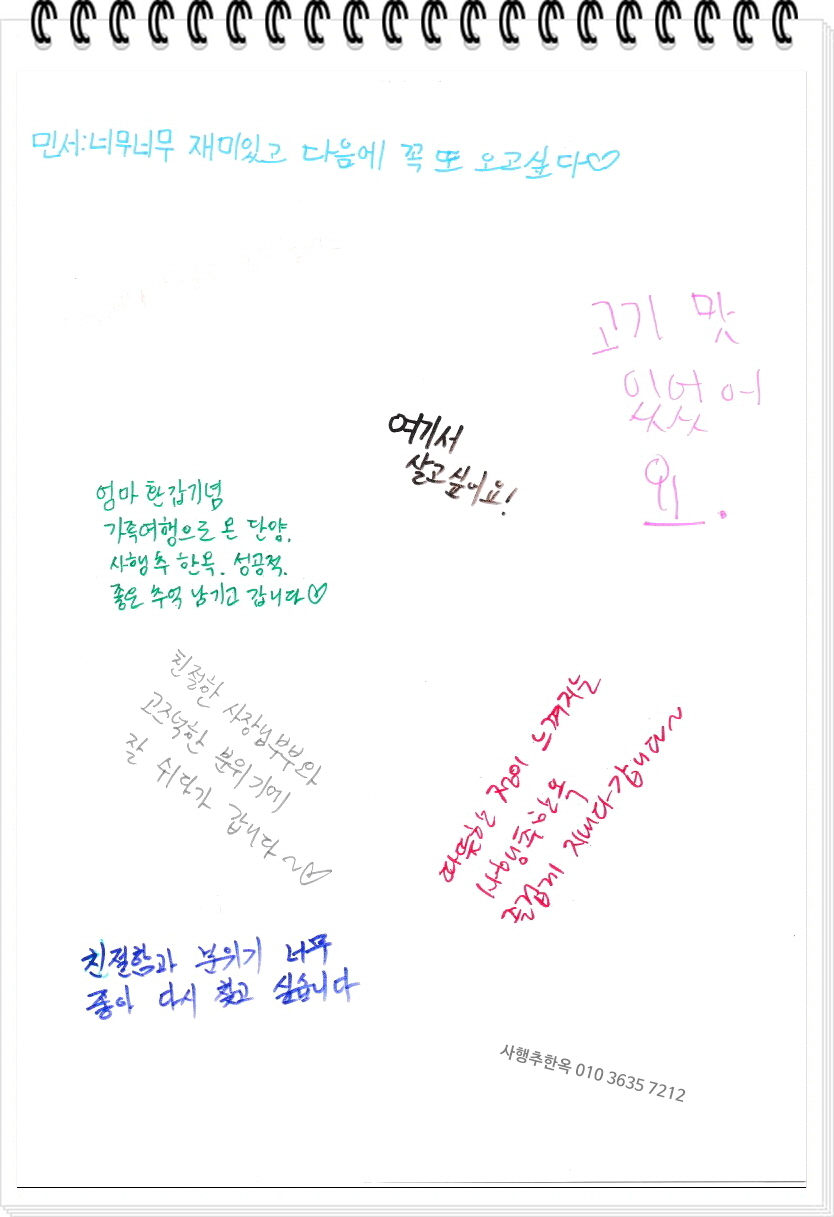 민서:너무너무 재미있고 다음에 꼭 또 오고싶다♡
고기 맛
있었어
요.
여기서
살고싶어요!
엄마 환갑기념
가족여행으로 온 단양.
사행추 한옥. 성공적.
좋은 추억 남기고 갑니다♡
친절한 사장님부부와
고즈넉한 분위기에
잘 쉬다가 갑니다~♡
따뜻한 정이 느껴지는
사행추한옥
즐겁게 지내다갑니다~
친절함과 분위기 너무
좋아 다시 찾고 싶습니다
사행추한옥 010 3635 7212